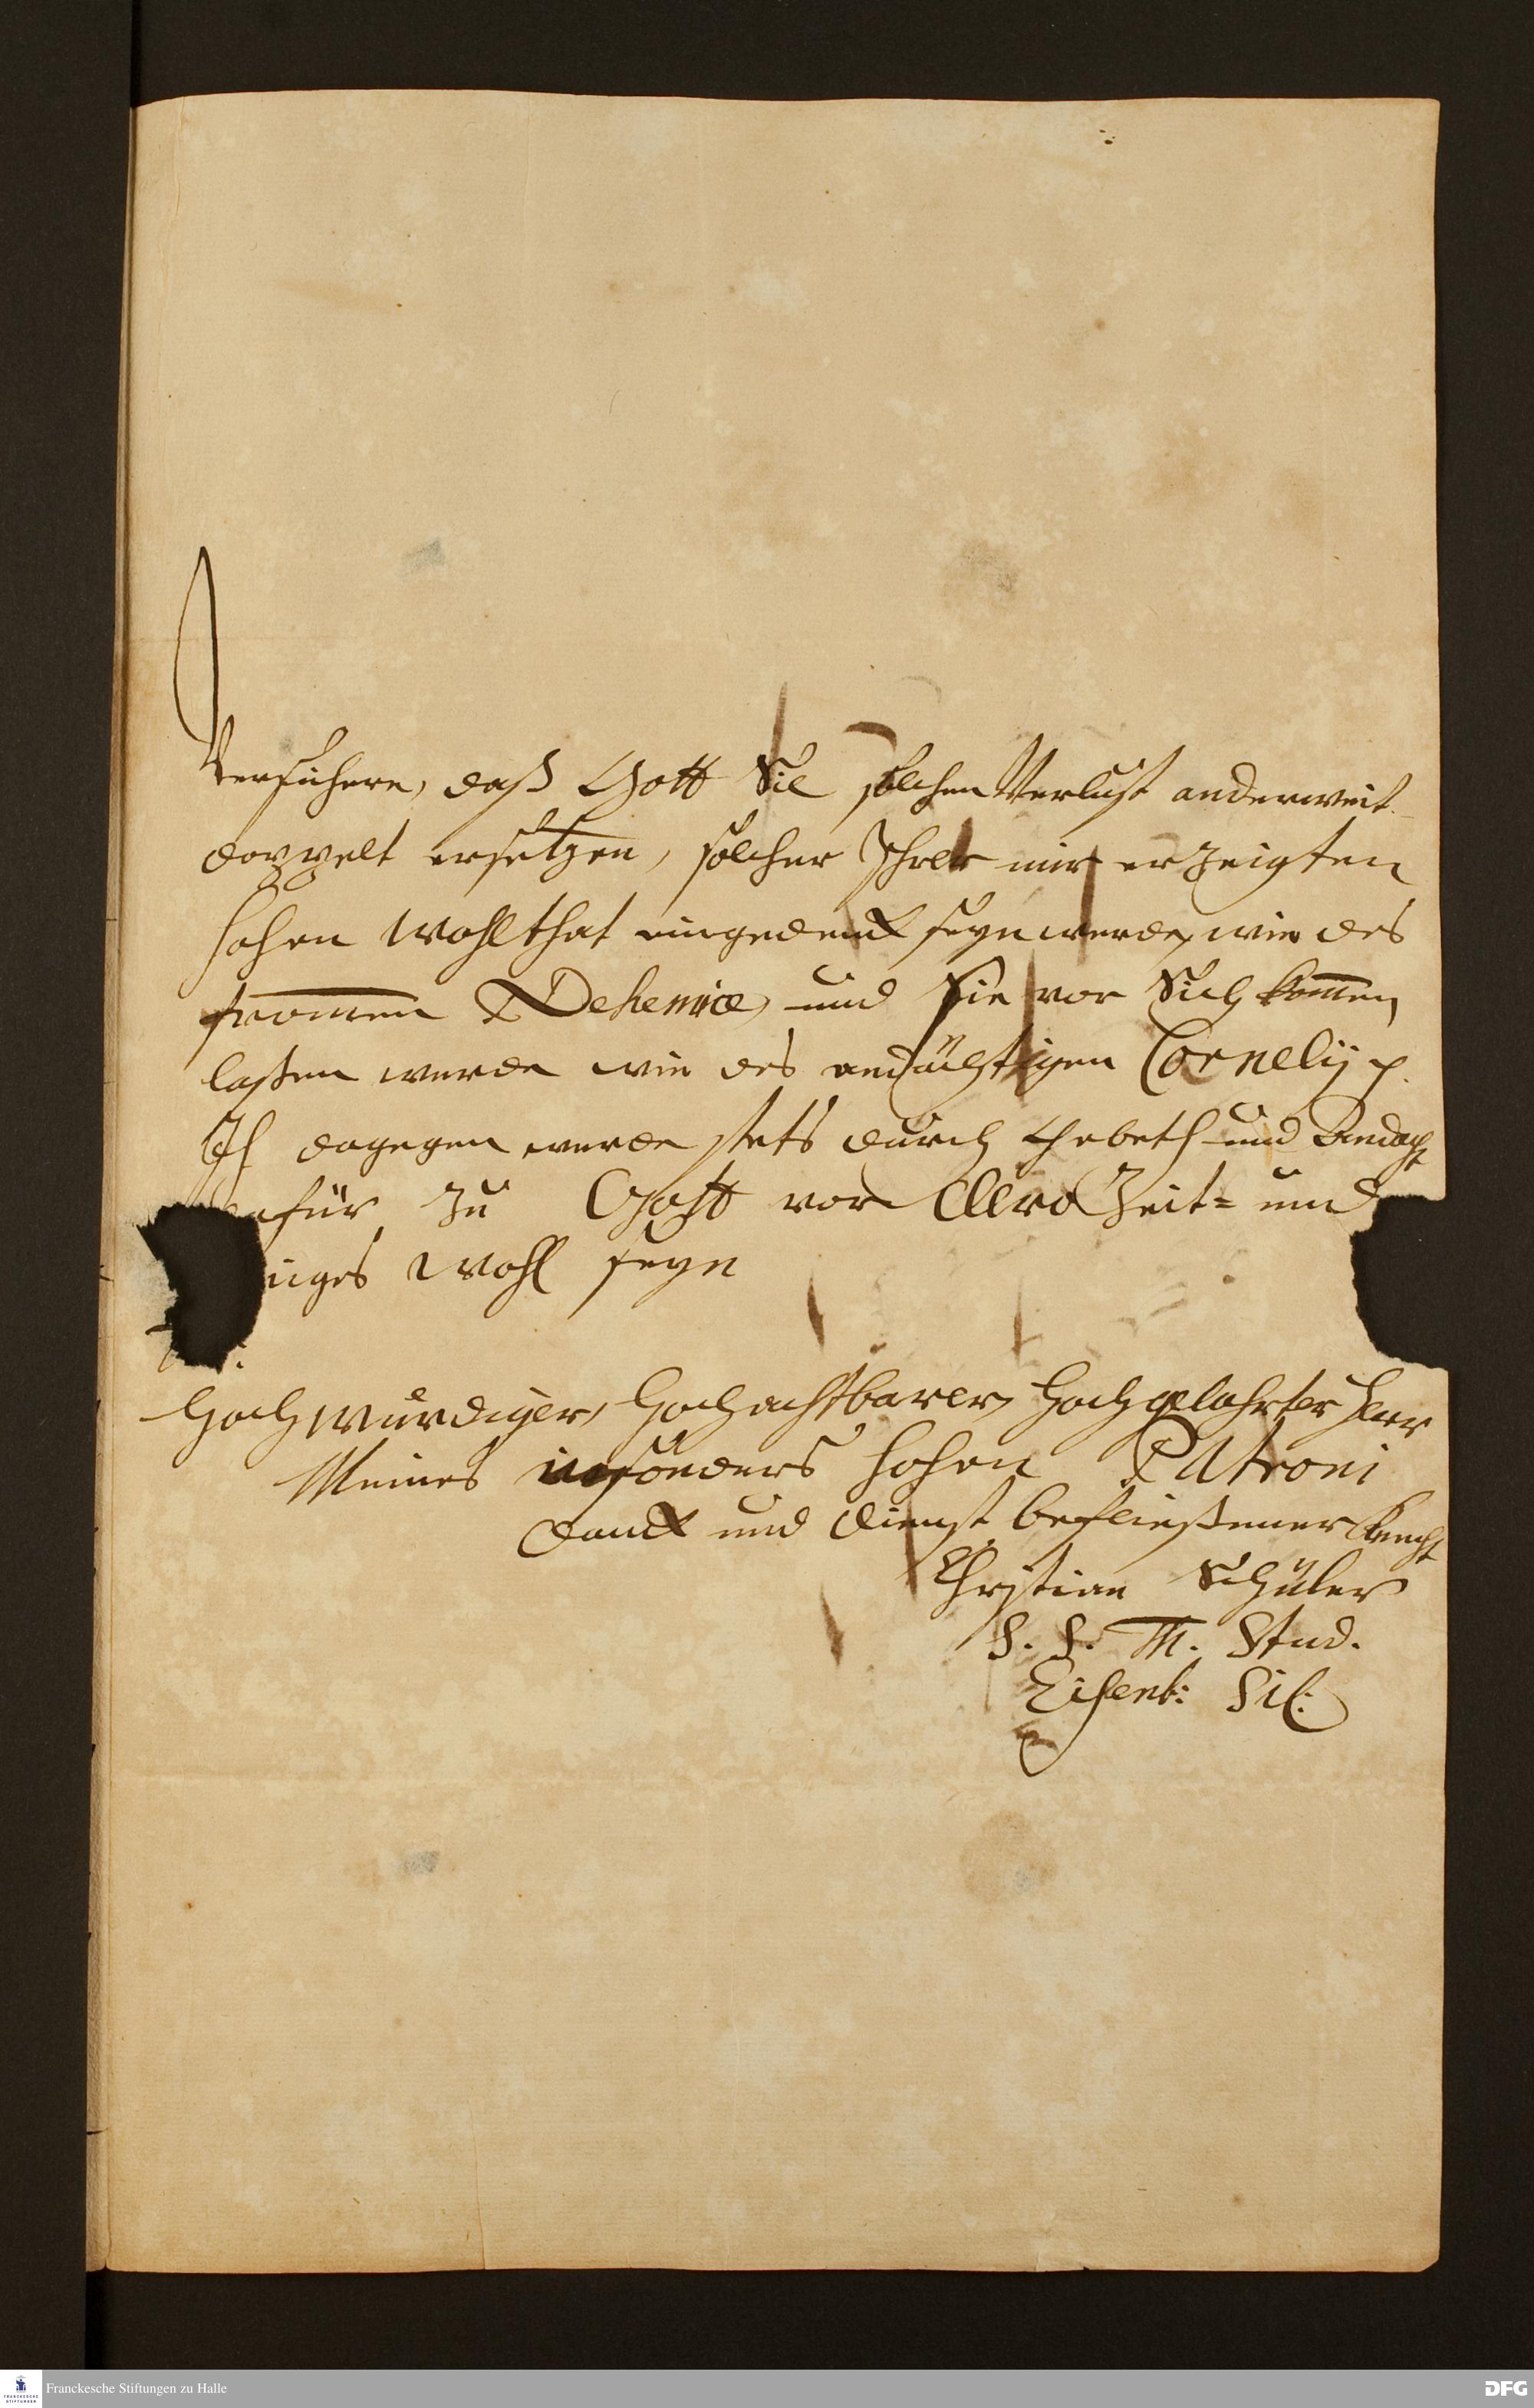 versichern, daß Gott Sie solchen Verlust anderweit
doppelt ersetzen, solcher Ihrer mir erzeigten
hohen Wohlthat eingedenk seyn werde, wie des
fromen Nehemiae, und Sie vor Sich komen
laßen werde wie des andächtigen Cornelij p.
Ich dagegen werde stets durch Gebeth und Andacht
dafür zu Gott vor Dero Zeit= und
iges Wohl seyn
Hochwürdiger, Hochachtbarer, Hochgelahrter Herr
Meines insonders hohen Patroni
Danck und Dienst befließener Knecht
Christian Schüler
S. S. Th. Stud.
Eisenb: Sil:
Franckesche Stiftungen zu Halle
FRANCKESCHE
STIFTUNGEN
DFG